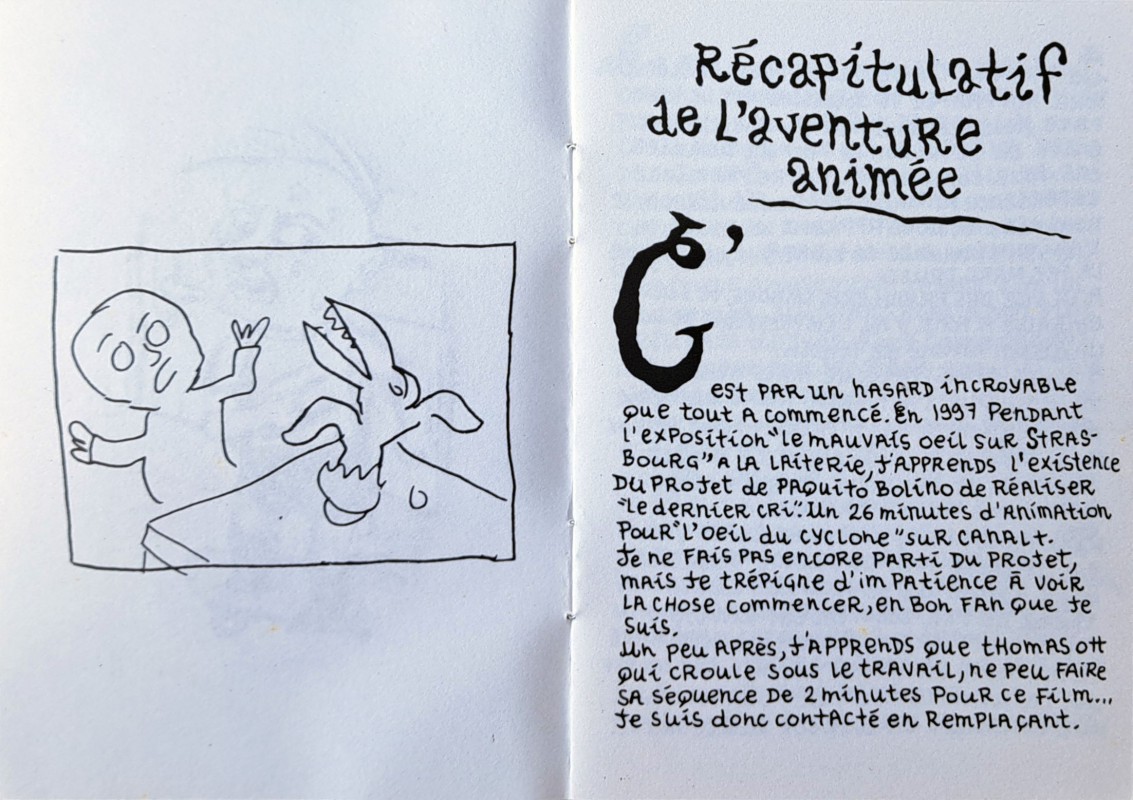 Récapitulatif
de l'aventure
animée
C'
est par un hasard incroyable
que tout a commencé. En 1997 pendant
l'exposition "le mauvais oeil sur Stras-
bourg" a la Laiterie, j'apprends l'existence
du projet de Paquito Bolino de réaliser
"le dernier cri". Un 26 minutes d'animation
pour "l'oeil du cyclone" sur Canal+.
Je ne fais pas encore parti du projet,
mais je trépigne d'impatience à voir
la chose commencer, en bon fan que je
suis.
Un peu après, j'apprends que Thomas Ott
qui croule sous le travail, ne peu faire
sa séquence de 2 minutes pour ce film...
Je suis donc contacté en remplaçant.